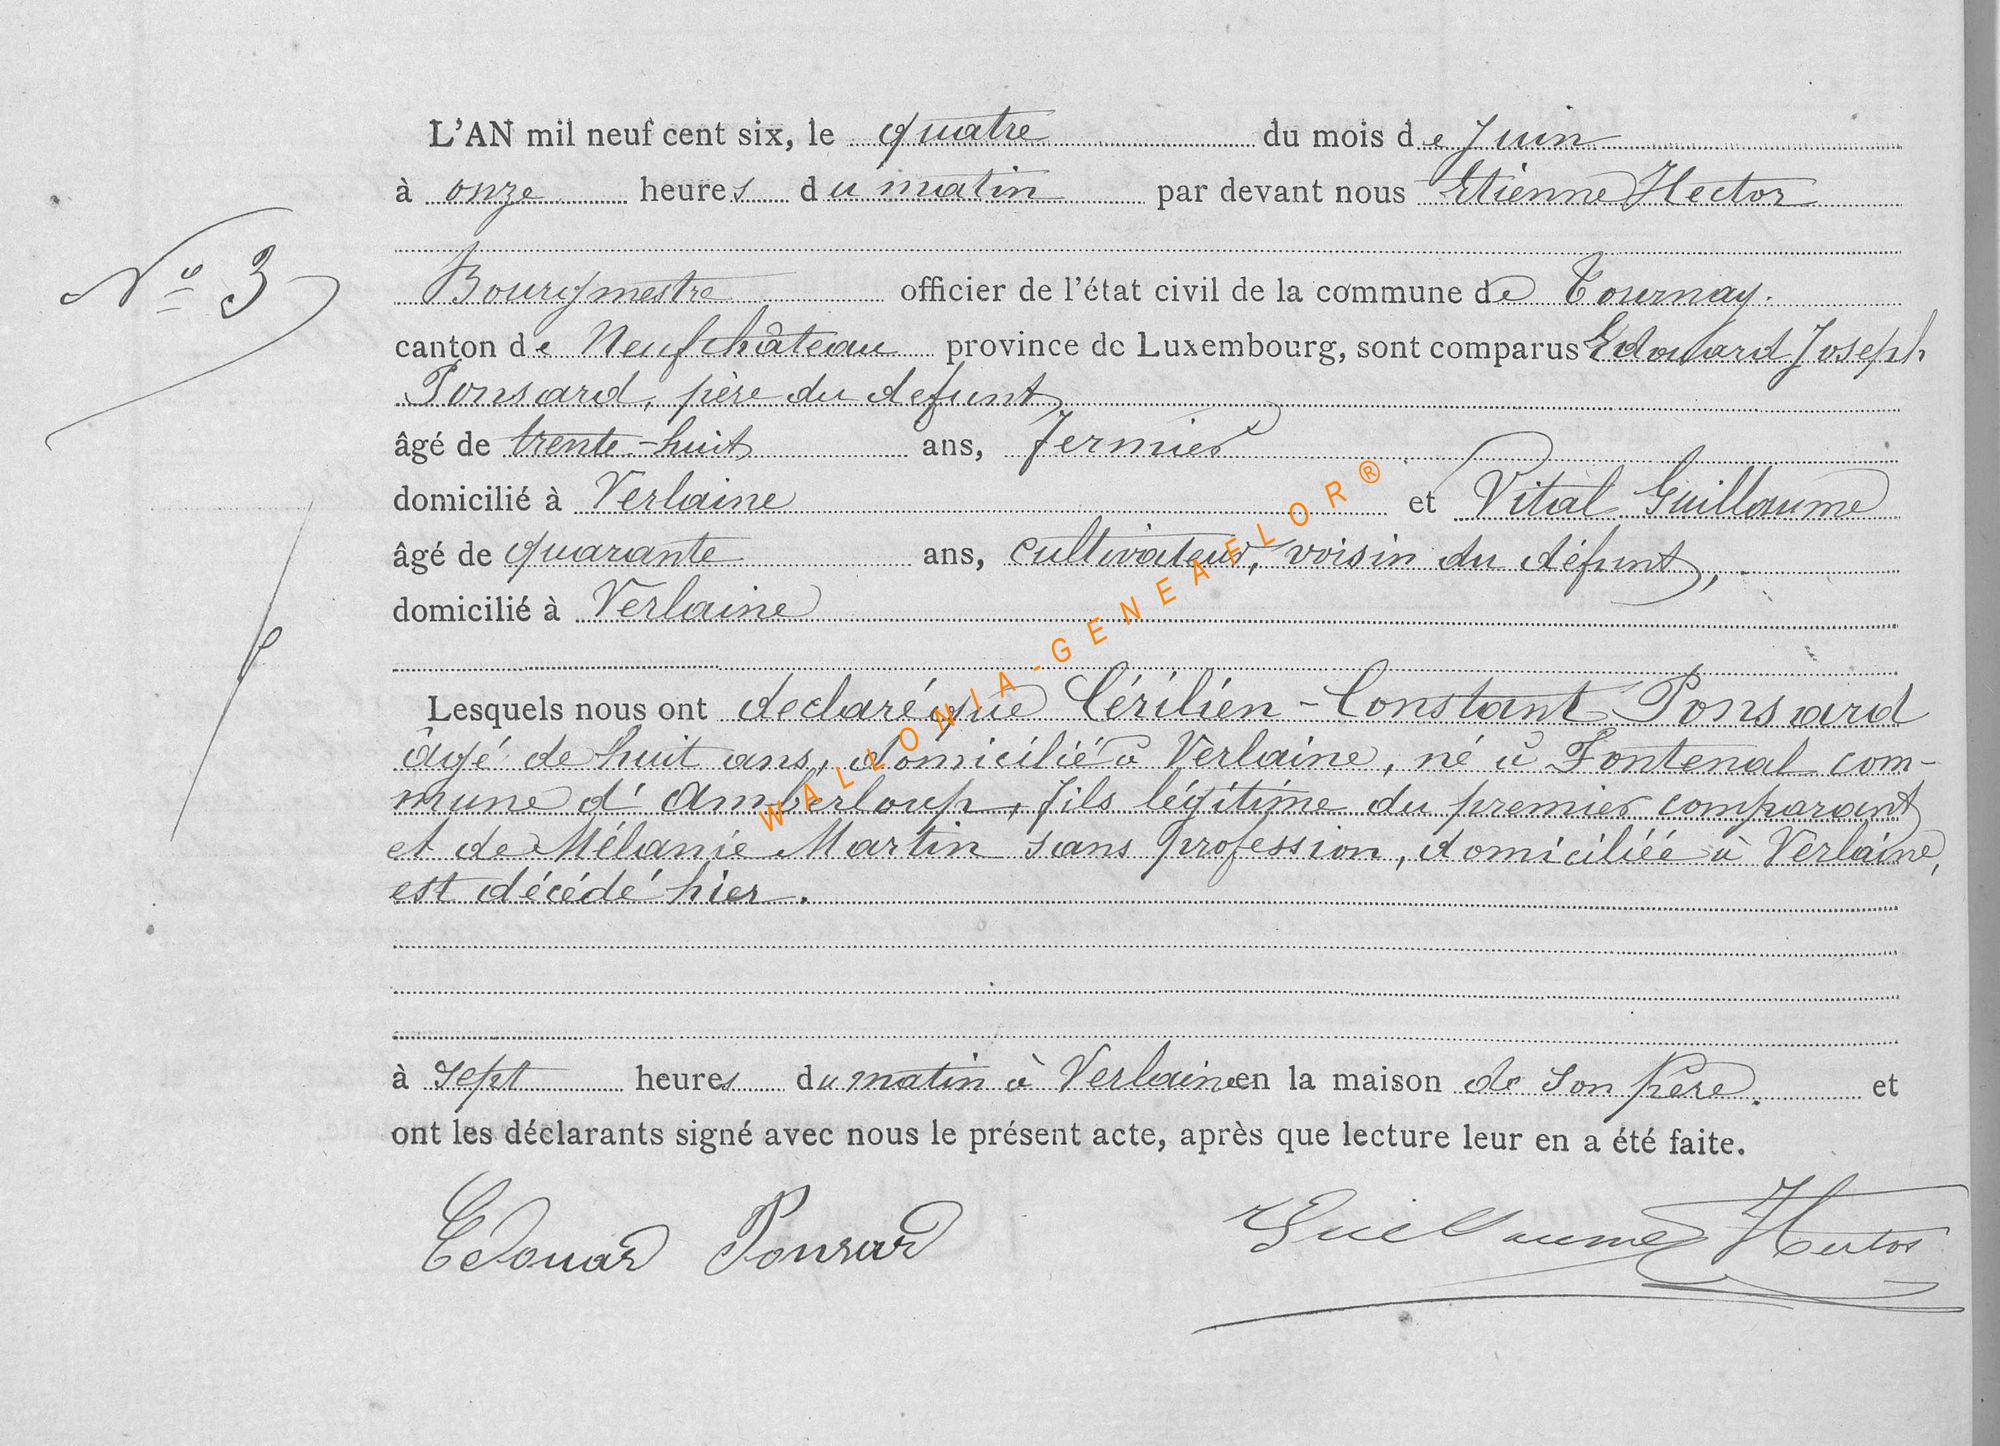 L'AN mil neuf cent six, le quatre du mois de Juin
à onze heures du matin par devant nous Etienne Hector
N° 3
Bourgmestre officier de l'état civil de la commune de Tournay.
canton de Neufchâteau province de Luxembourg, sont comparus Edouard Joseph
Ponsard, père du defunt
âgé de trente-huit ans, fermier
domicilié à Verlaine et Vital Guillaume
âgé de quarante ans, cultivateur, voisin du défunt,
domicilié à Verlaine
Lesquels nous ont declaré que Cérilién-Constant Ponsard
âgé de huit ans, domicilié à Verlaine, né à Fontenal com-
mune d'Amberloup, fils légitime du premier comparant
et de Mélanie Martin sans profession, domiciliée à Verlaine,
est décédé hier.
à sept heures du matin à Verlaine en la maison de son père. et
ont les déclarants signé avec nous le présent acte, après que lecture leur en a été faite.
Edouard Ponsard Guillaume Hector
WALLONIA-GENEAFLOR®